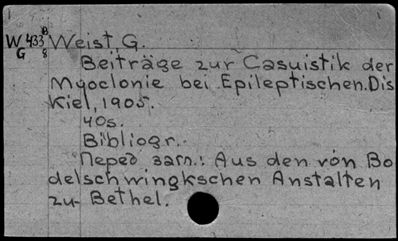 W 433 B
G 8
Weist G.
Beiträge zur Casuistik der
Myoclonie bei Epileptischen. Dis
Kiel, 1905.
40s.
Bibliogr.
Перед загл.: Aus den von Bo
delschwingkschen Anstalten
zu Bethel.